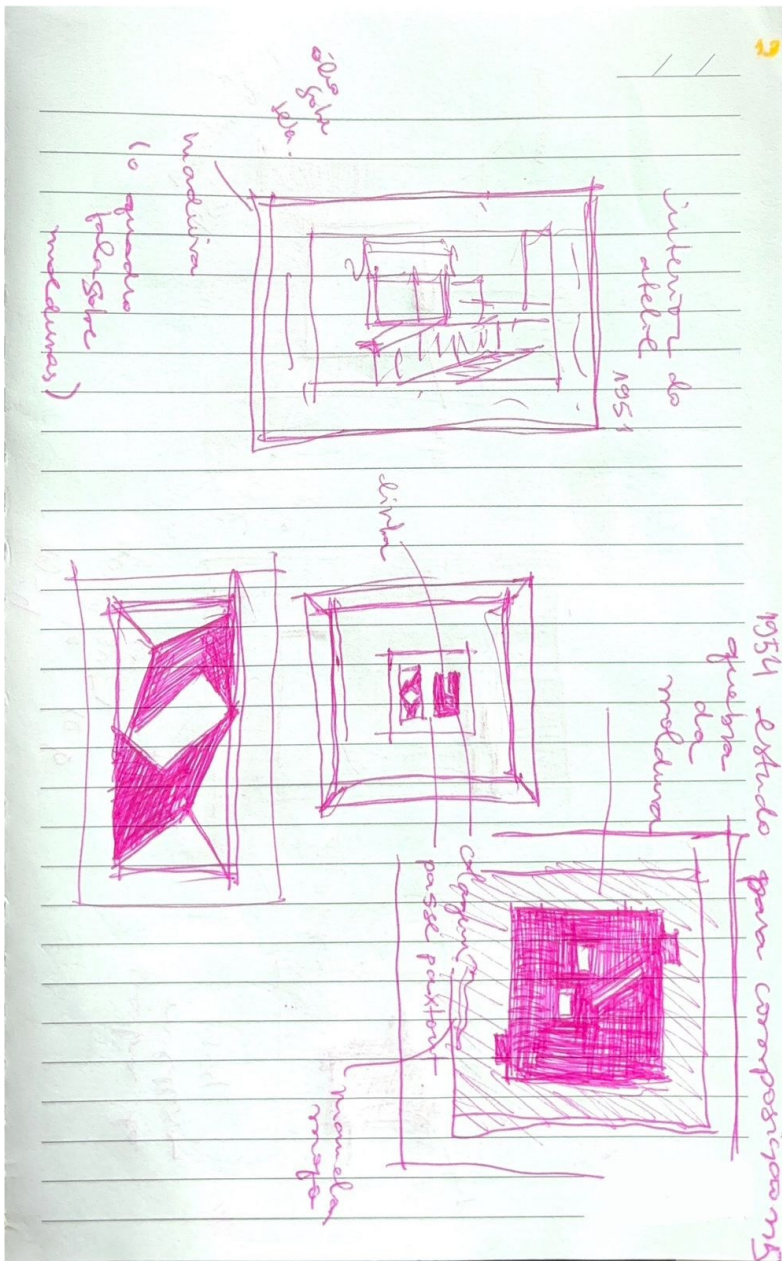 interior do
ateliê
1951
óleo
sobre
tela.
madeira
(o quadro
fala sobre
molduras)
1954 estudo para composição nº5
quebra
da
moldura
linha
colagem
passe paxtout